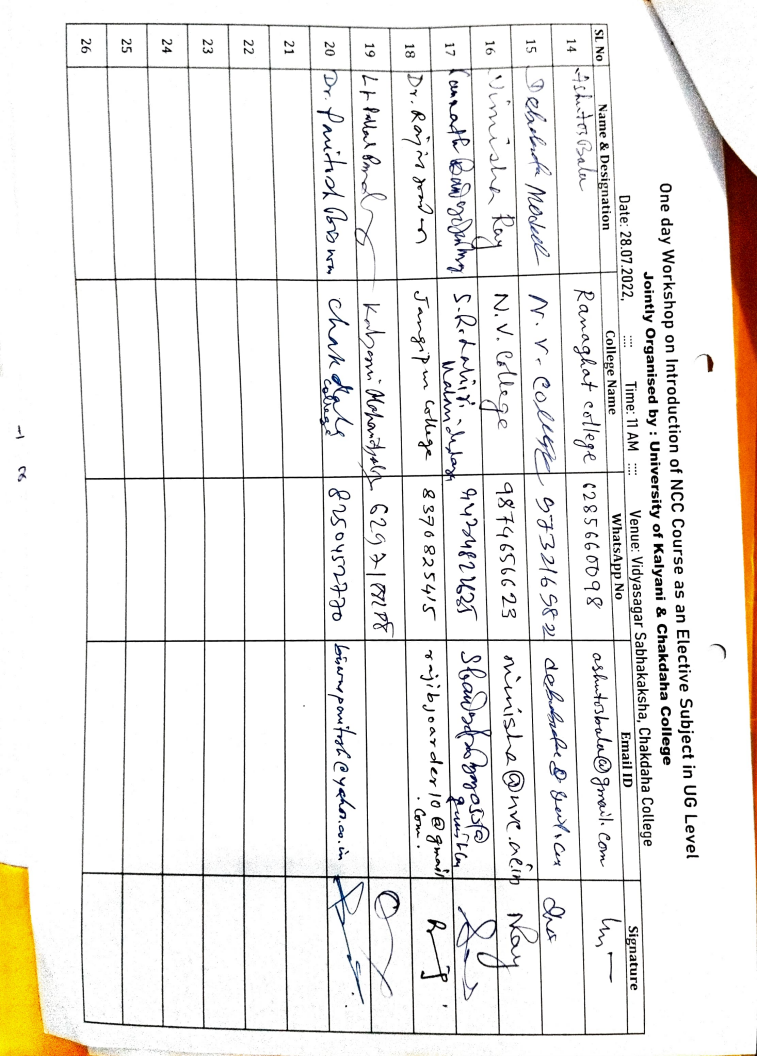 One day Workshop on Introduction of NCC Course as an Elective Subject in UG Level
Jointly Organised by : University of Kalyani & Chakdaha College
Date: 28.07.2022, .... Time: 11 AM .... Venue: Vidyasagar Sabhakaksha, Chakdaha College
Sl. No Name & Designation College Name WhatsApp No Email ID Signature
14 Ashutos Bala Ranaghat college 6285660098 ashutosbala@gmail.com
15 N. V. College 973216982
16 Nimisha Ray N. V. College 9874656623 nimisha@nvc.ac.in NRay
17 S.R. Lahiri
18 Dr. Rajib Joarder Jangipur College 8370825415 rajibjoarder10@gmail
.com.
19 Lt Kalyani Mahavidyalaya
20 Dr. Paritosh Biswas Chakdaha 8250452770 biswasparitosh@yahoo.co.in
College
21
22
23
24
25
26